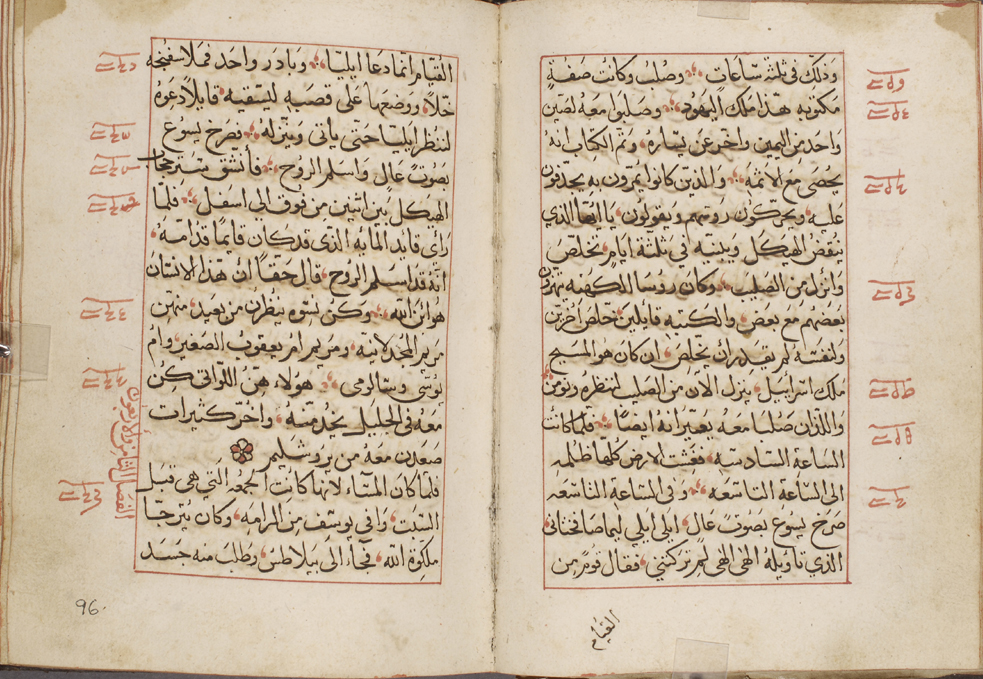 وذلك في ثلثة ساعات وصلب وكانت صفية
مكتوبه هذا ملك اليهود وصلبوا معه لصّين
واحد من اليمين واخر عن يساره وتم الكتاب انه
يحصى مع الاثمة والذين كانوا يمرون به يجدّفون
عليه ويحركون روسهم ويقولون يا ايها الذي
ينقض الهيكل ويبنيه في ثلثة ايام تخلص
وانزل من الصليب وكان روسا الكهنه يهزون
بعضهم مع بعض والكتبه قايلين خلص اخرين
ولنفسه لم يقدر ان يخلص ان كان هو المسيح
ملك اسرايىل ينزل الان من الصليب لننظره ونومن
واللذان صلبا معه يعيّرانه ايضًا فلما كانت
الساعة السادسه فغشت الارض كلها ظلمه
الى الساعة التاسعه وفي الساعة التاسعه
صرخ يسوع بصوت عال ايلي ايلي ليما صافختاني
الذي تاويله الهي الهي لم تركتني فقال قوم من
القيام
القيام انما دعا ايليا وبادر واحد فملا سفنجه
خلًا ووضعها على قصبه ليسقيه قايلا دعوه
لننظر ايليا حتى ياتي وينزله فصرخ يسوع
بصوت عال واسلم الروح فانشق ستر حجاب
الهيكل بين اثنين من فوق الى اسفل فلمّا
راى قايد المايه الذي قد كان قايمًا قدامه
انه قد اسلم الروح قال حقًا ان هذا الانسان
هو ابن الله وكن نسوه ينظرن من بعيد منهن
مريم المجدلانيه ومريم ام يعقوب الصغير وام
يوسى وسالومى هولاء هنّ اللّواتي كن
معه في الجليل يخدمنه واخر كثيرات
صعدن معه من يروشليم
فلما كان المساء لانها كانت الجمعه التي هي قبل
السبت واتى يوسف من الرامه وكان يترجّا
ملكوة الله فجاء الى بيلاطس وطلب منه جسد
96.